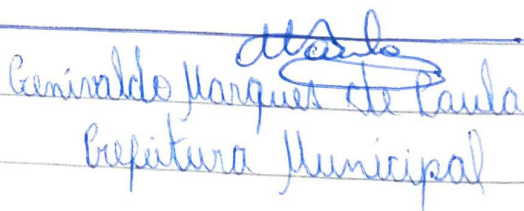 Genivaldo Marques de Paula
Prefeitura Municipal